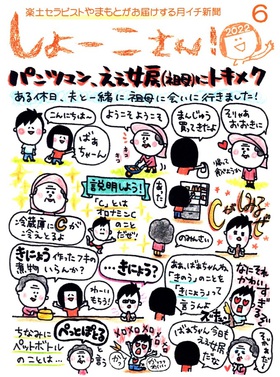 楽土セラピストやまもとがお届けする月イチ新聞
しょーこさん!
2022
6
パンツマン、ええ女房(祖母)にトキメク
ある休日、夫と一緒に祖母に会いに行きました!
こんにちはー
ばぁちゃーん
ようこそようこそ
まんじゅう買てきたよ
そりゃあおおきに
説明しよう!
「C」とは
オロナミンC
のことだぜ!!
冷蔵庫にCが
冷えとるよ
のみんてい
きにょう作ったフキの
煮物いらんか?
…きにょう?
わーい
もらう!
おぉ、ばあちゃんね、
「きのう」のことを
「きにょう」って
言うんよ
なにそれ
かわいすぎるぞ
ちなみに
ペットボトル
のことは…
ペっとぽとる
言う!
ばあちゃん今日も
ええ女房
だな